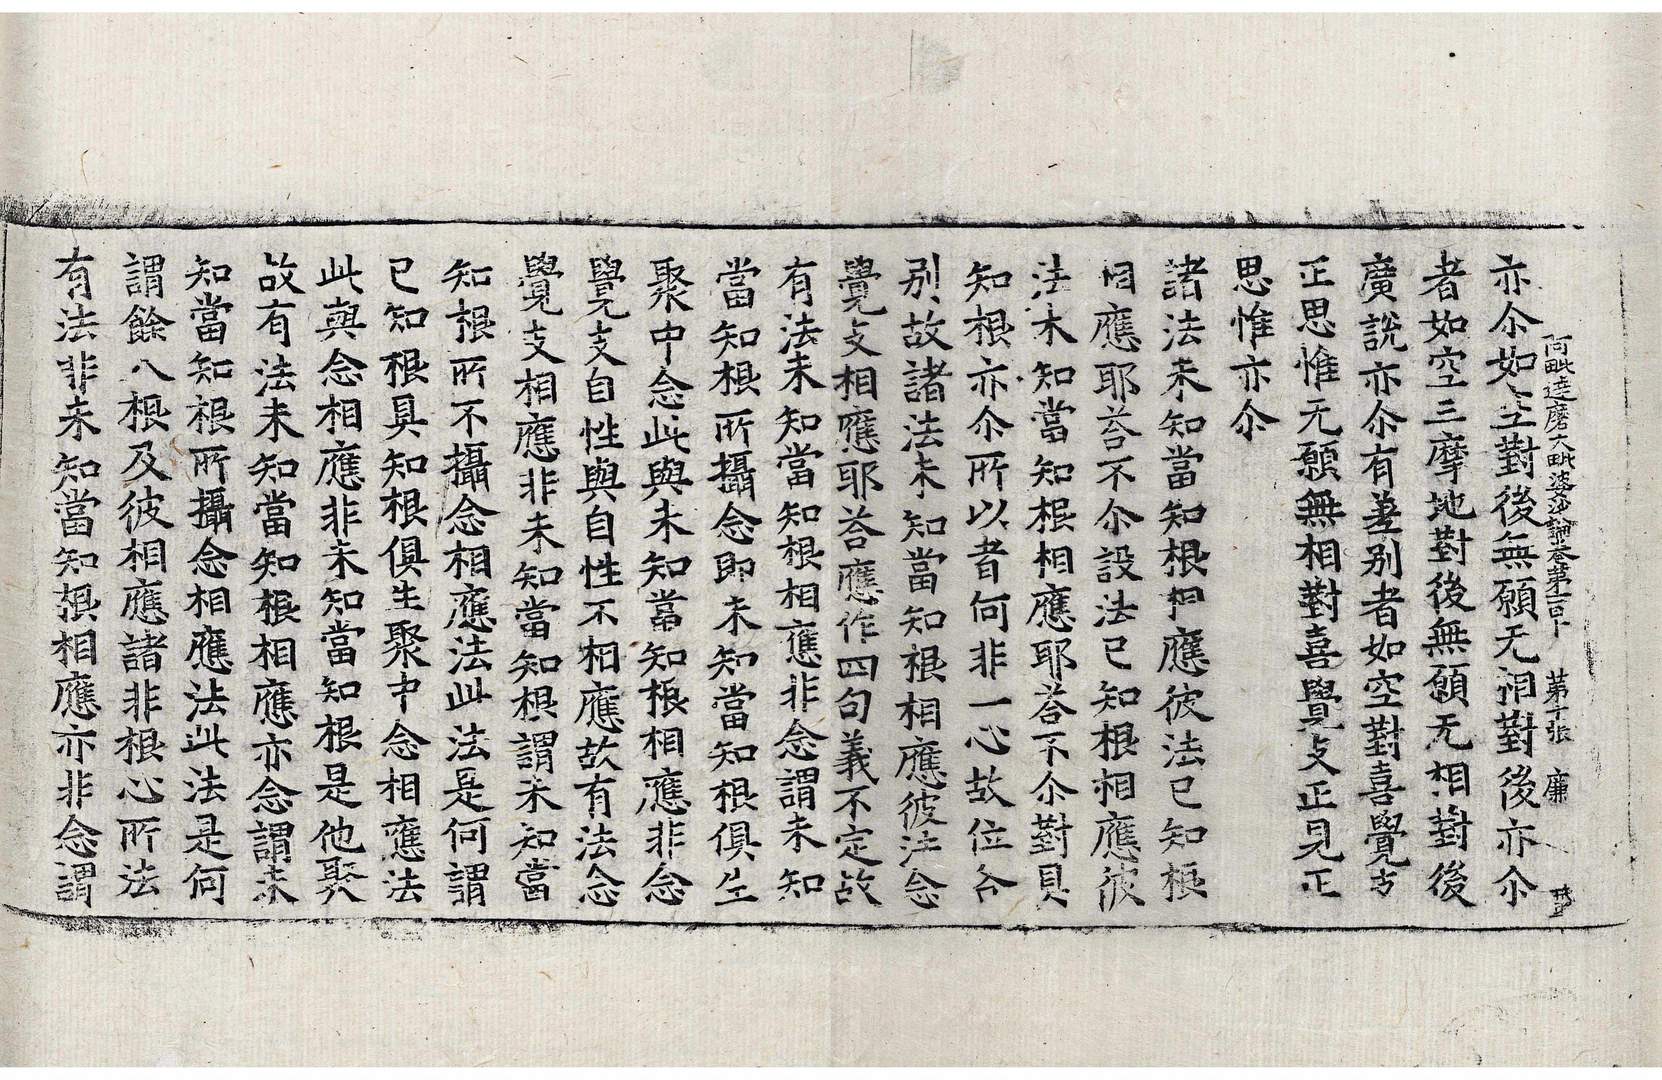 阿毗達磨大毗婆沙論卷第一百十　第十張　廉
亦尒如空對後無願无相對後亦尒
者如空三摩地對後無願无相對後
廣說亦尒有差别者如空對喜覺支
正思惟无願無相對喜覺支正見正
思惟亦尒
諸法未知當知根相應彼法已知根
相應耶荅不尒設法已知根相應彼
法未知當知根相應耶荅不尒對具
知根亦尒所以者何非一心故位各
别故諸法未知當知根相應彼法念
覺支相應耶荅應作四句義不定故
有法未知當知根相應非念謂未知
當知根所攝念即未知當知根俱生
聚中念此與未知當知根相應非念
覺支自性與自性不相應故有法念
覺支相應非未知當知根謂未知當
知根所不攝念相應法此法是何謂
已知根具知根俱生聚中念相應法
此與念相應非未知當知根是他聚
故有法未知當知根相應亦念謂未
知當知根所攝念相應法此法是何
謂餘八根及彼相應諸非根心所法
有法非未知當知根相應亦非念謂